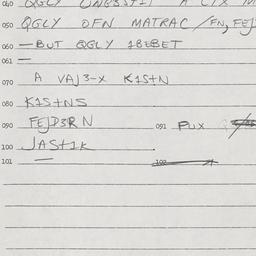 050 QGLY OFN MATRAC /FN, FEJ
060 —BUT QGLY 18EBET
061 —
070 A VAJ3-X K1S+N
080 K1S+NS
090 FEJD3RN 091 PUX
100 JAS+1K
101 — 102